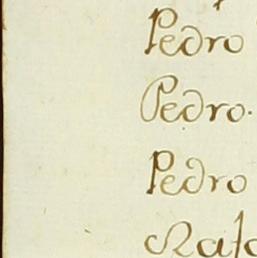 Pedro
Pedro.
Pedro